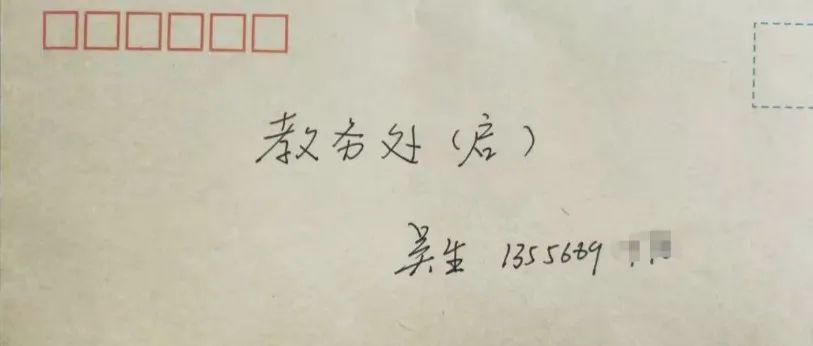 教务处（启）
吴生 1355689